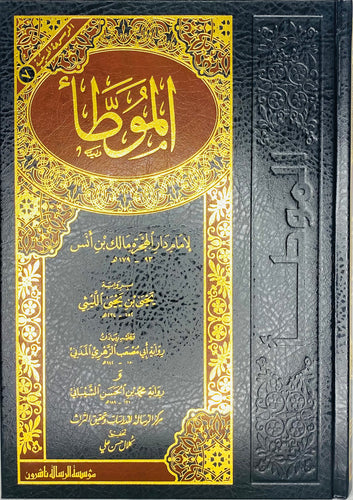 ٧
الموطأ
لإمام دار الهجرة مالك بن أنس
٩٣ - ١٧٩ هـ
برواية
يحيى بن يحيى الليثي
مع زيادات
رواية أبي مصعب الزهري المدني
و
رواية محمد بن الحسن الشيباني
مركز الرسالة للدراسات وتحقيق التراث
كلال حسن علي
مؤسسة الرسالة ناشرون
الموطأ